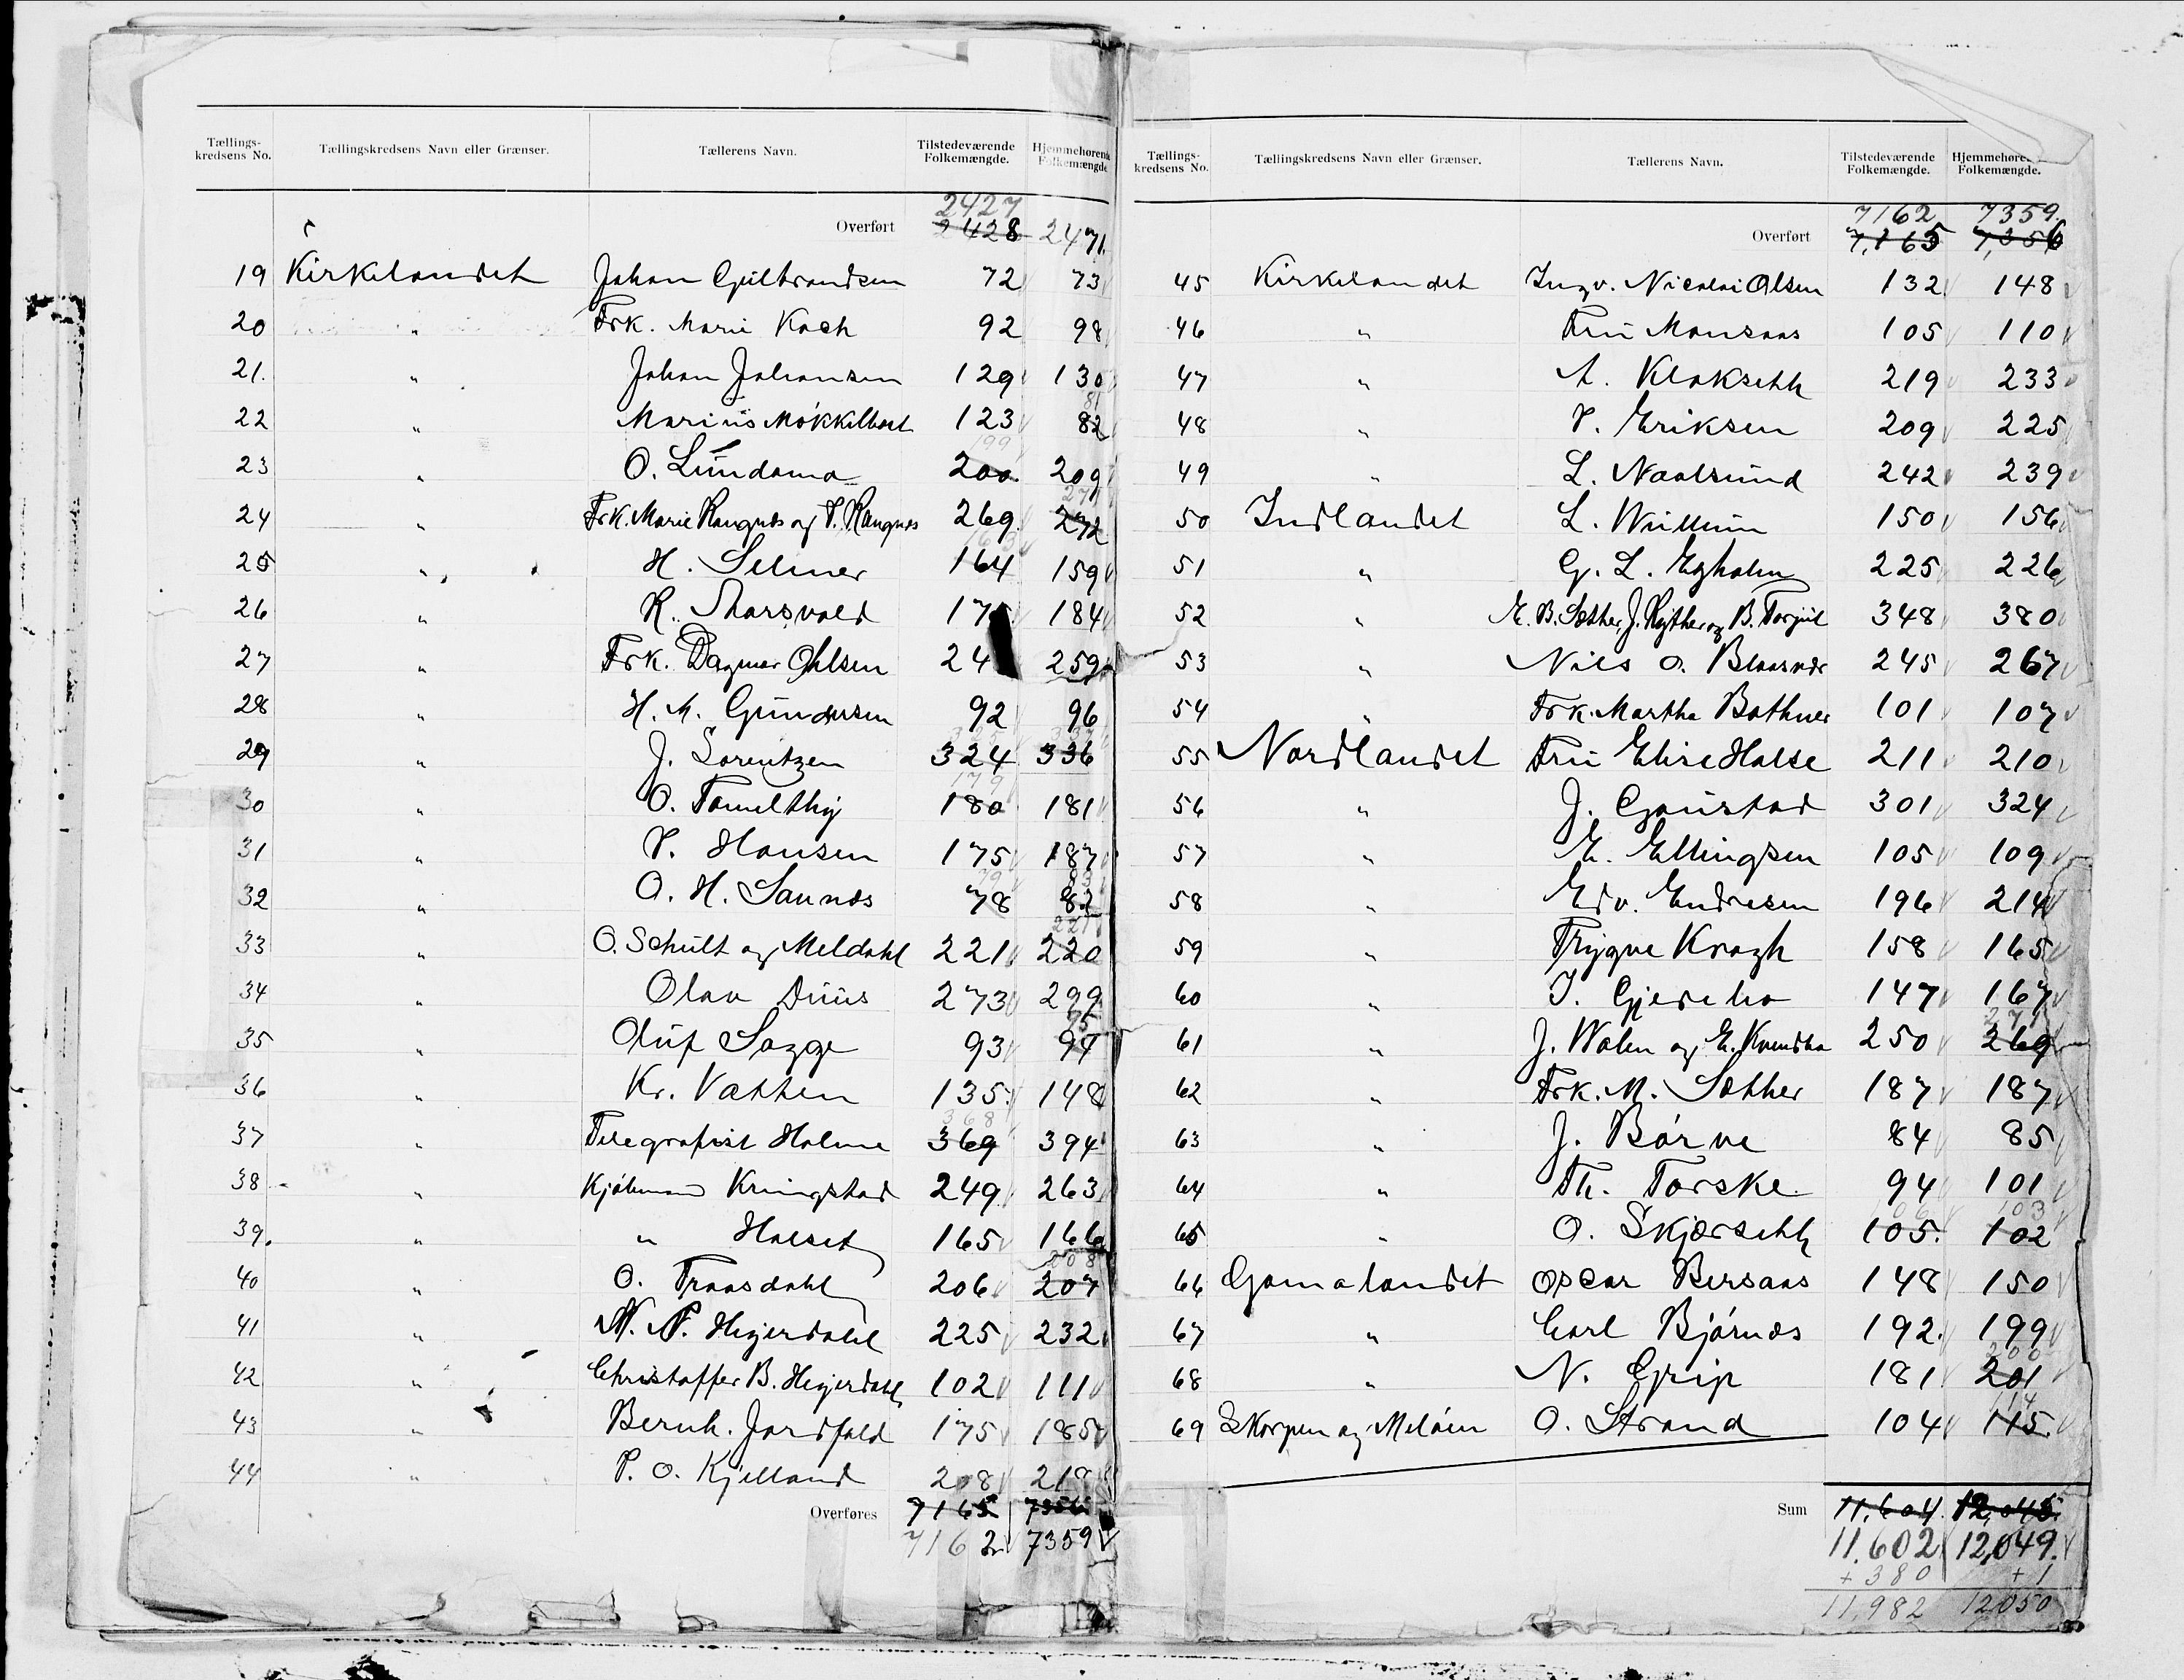 Tællings-kredsens No. Tællingskredsens Navn eller Grænser. Tællerens Navn. Tilstedeværende Folkemængde. Hjemmehørende Folkemængde
2427
Overført 2428 2471.
19 Kirkelandet Johan Gulbrandsen 72 73
20 " Frk. Marie Koch 92 98
21. " Johan Johansen 129 130
81
22 " Marius Møkkelbost 123 82
199
23 " O. Lundamo 200 209
271
24 " Frk. Marie Rangnes og P. Rangnes 269 272
163
25 " H. Selmer 164 159
26 " K. 184
27 " Frk. Dagmar Ohlsen 24 259
28 " H. M. Gundersen 92 96
325 337
29 " J. Lorentzen 324 336
179
30 " O. 180 181
31 " P. Hansen 175 187
79 83
32 " O. H. Saunes 78 82
221
33 " O. Schult og Meldahl 221 220
34 " Olav Duus 273 299
95
35 " Oluf Sagge 93 94
36 " Kr. Vatten 135 148
368
37 " Telegrafist Holme 369 394
38 " Kjøbmand Kringstad 249 263
39. " " Halset 165 166
208
40 " O. Traasdahl 206 207
41 " N. P. Heyerdahl 225 232
42 " Christoffer B. Heyerdahl 102 111
43 " Bernh. Jordfald 175 185
44 " P. O. Kjelland 208 218
Overføres 7165 7356
7162 7359
Tællings-kredsens No. Tællingskredsens Navn eller Grænser. Tællerens Navn. Tilstedeværende Folkemængde. Hjemmehøre Folkemængde.
7162 7359.
Overført 7,165 7,356
45 Kirkelandet Ingv. Nicolai Olsen 132 148
46 " Fru Monsaas 105 110
47 " A. Kloksetth 219 233
48 " P. Eriksen 209 225
49 " L. Naalsund 242 239
50 Indlandet L. Wullum 150 156
51 " G. L. Egholm 225 226
52 " E. B. Sæther, J. Rytter og B. Torjul 348 380
53 " Nils O. 245 267
54 " Frk. Martha Bothner 101 107
55 Nordlandet Fru Elise Halse 211 210
56 " J. Gaustad 301 324
57 " E. Ellingsen 105 109
58 " Edv. Endresen 196 214
59 " Trygve Kragh 158 165
60 " J. 147 167
271
61 " J. Walen og E. 250 269
62 " Frk. M. Sæther 187 187
63 " J. Børve 84 85
64 " Th. Torske 94 101
106 103
65 " O. Skjærsetth 105. 102
66 Gomalandet Oscar Bersaas 148 150
67 " Carl Bjørnes 192. 199
200
68 " N. Grip 181 201
114
69 Skorpen og Meløen O. Strand 104 115
Sum 11,604. 12,045.
11.602 12,049.
+ 380 + 1
11,982 12,050